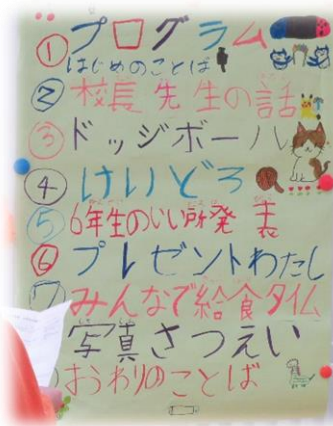 プログラム
①はじめのことば
②校長先生の話
③ドッジボール
④けいどろ
⑤6年生のいい所発表
⑥プレゼントわたし
⑦みんなで給食タイム
写真さつえい
おわりのことば